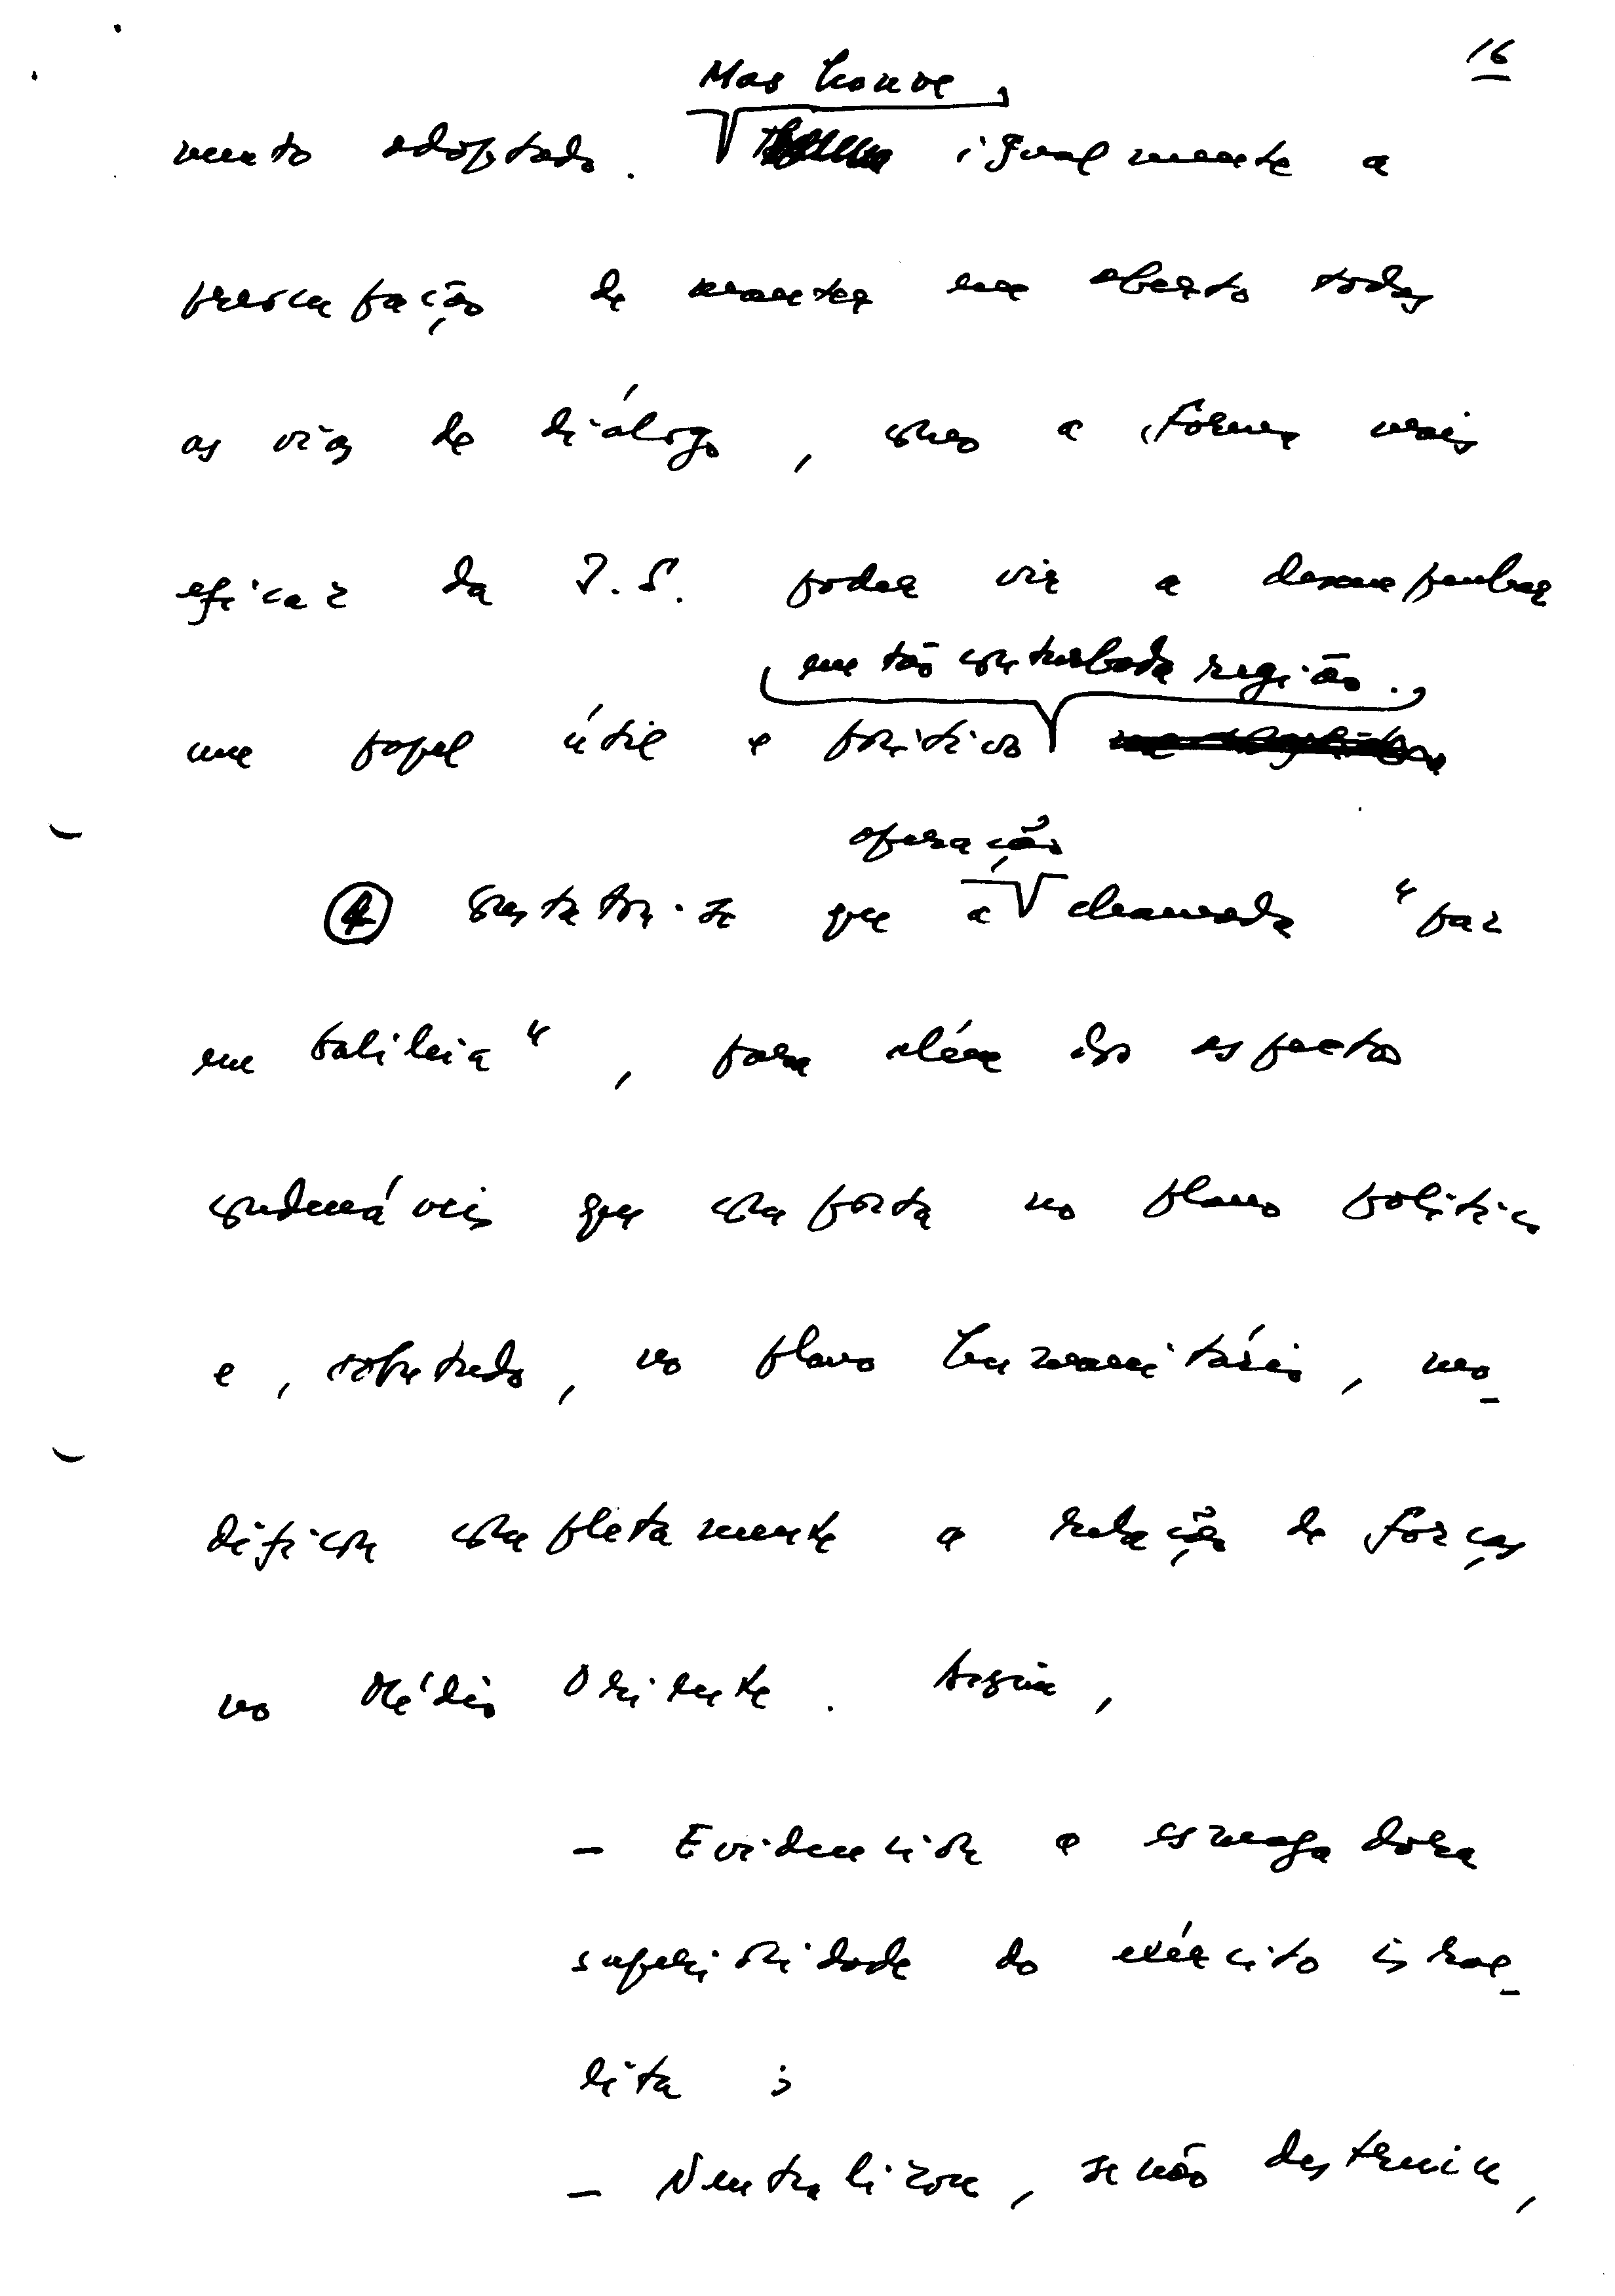 16
Mas houve
mento adoptado. igualmente a
preocupação de manter em aberto todas
as vias de diálogo, como a forma mais
eficaz da I.S. poder vir a desempenhar
em tão conturbada região.
um papel útil e positivo
operação
4 Constatou-se que a chamada "paz
em Galileia", para além dos aspectos
condenáveis que comporta no plano político
e, sobretudo, no plano humanitário, mo-
dificou completamente a relação de forças
no Médio Oriente. Assim,
- Evidenciou a esmagadora
superioridade do exército israe-
lita;
- Neutralizou, se não destruiu,